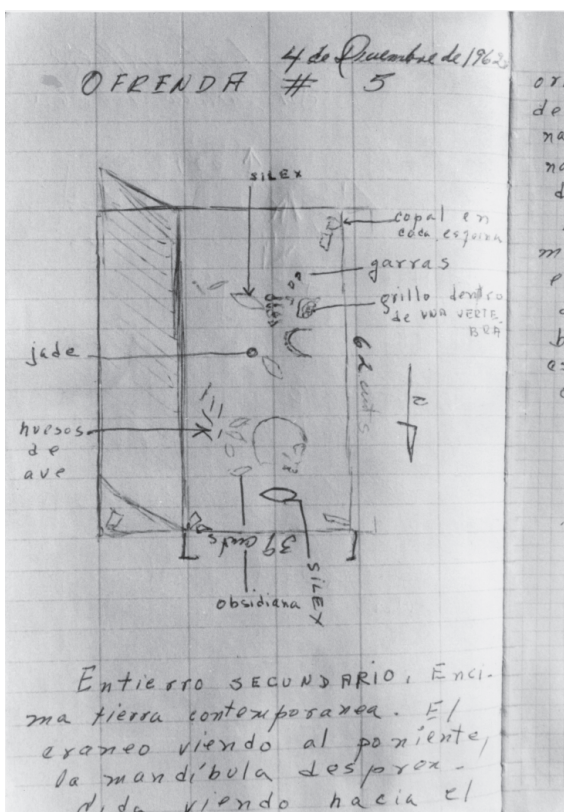 4 de Diciembre de 1962
OFRENDA # 5
SILEX
copal en
cada esquina
garras
grillo dentro
de UNA VERTE
BRA
jade
62 cmts
N
huesos
de
ave
39 cmts
obsidiana
SILEX
Entierro SECUNDARIO. Enci-
ma tierra contemporanea. El
craneo viendo al poniente,
la mandíbula despren-
dida viendo hacia el